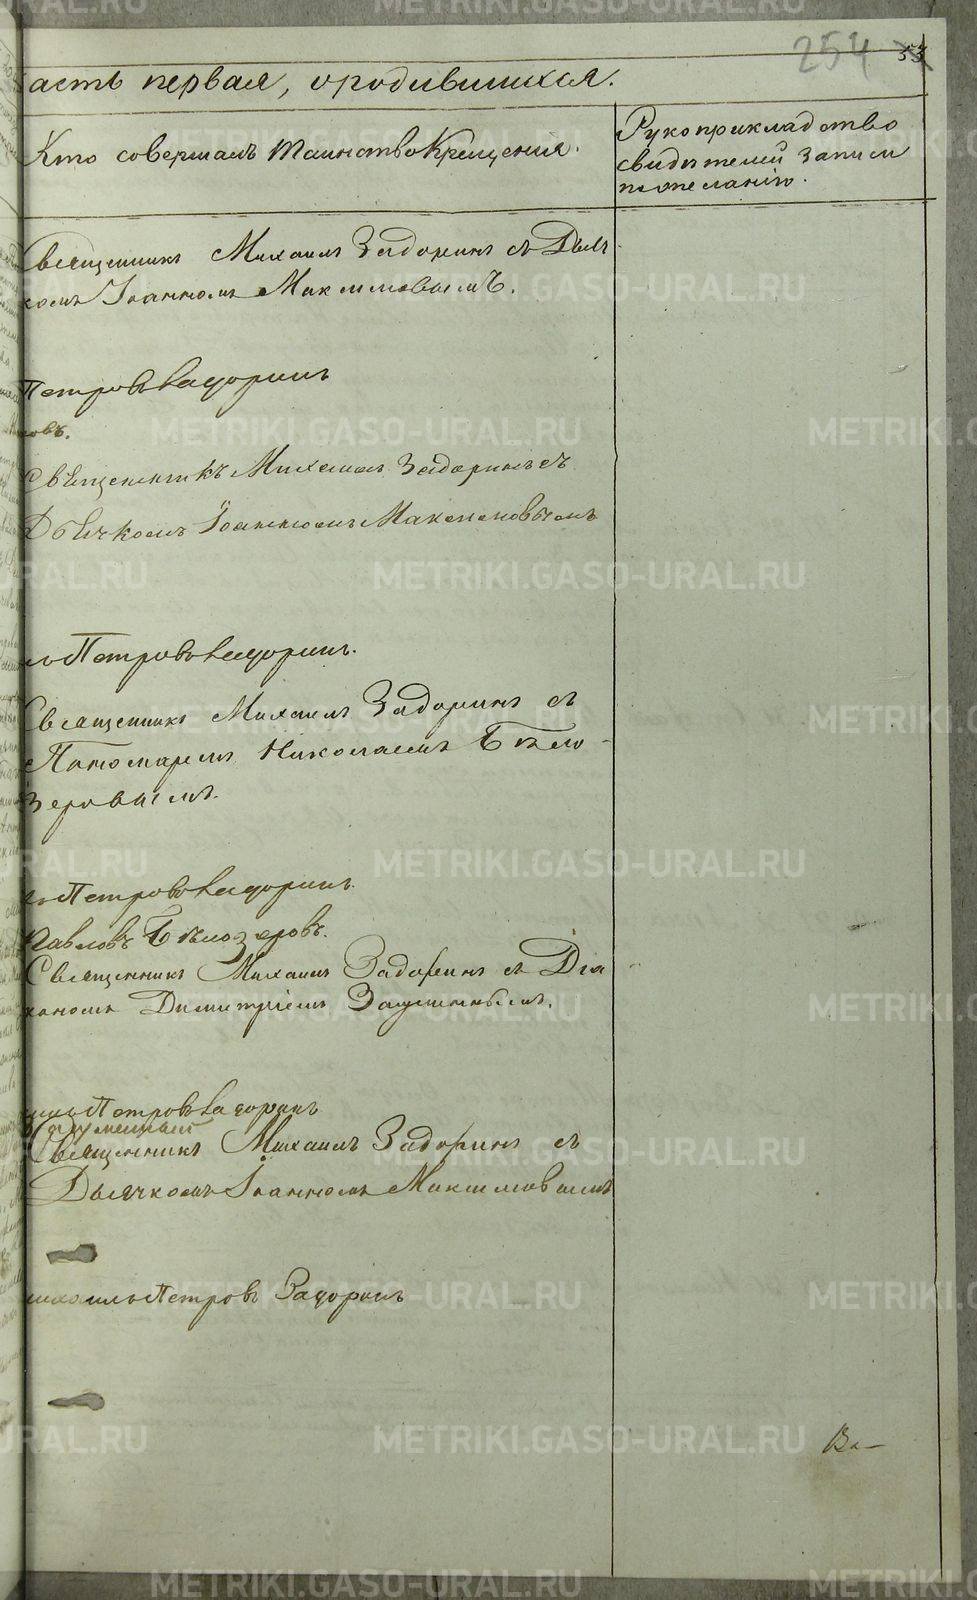 254 53
асть первая, о родившихся.
Кто совершалъ таинство Крещения.
Рукоприкладство
свидетелей записи
по желанію.
Священникъ Михаилъ Задоринъ съ Дьяч
комъ Іоанномъ Максимовымъ.
Петровъ Задоринъ
овъ.
Священникъ Михаилъ Задоринъ съ
Дьячкомъ Іоанномъ Максимовымъ
лъ Петровъ Задоринъ.
Священникъ Михаилъ Задоринъ съ
Пономаремъ Николаемъ Бѣло-
зеровымъ.
лъ Петровъ Задоринъ.
Павловъ Бѣлозеровъ.
Священникъ Михаилъ Задоринъ съ Діа
кономъ Димитріемъ
илъ Петровъ Задоринъ
Священникъ Михаилъ Задоринъ съ
Дьячкомъ Іоанномъ Максимовымъ
михаилъ Петровъ Задоринъ
METRIKI.GASO-URAL.RU